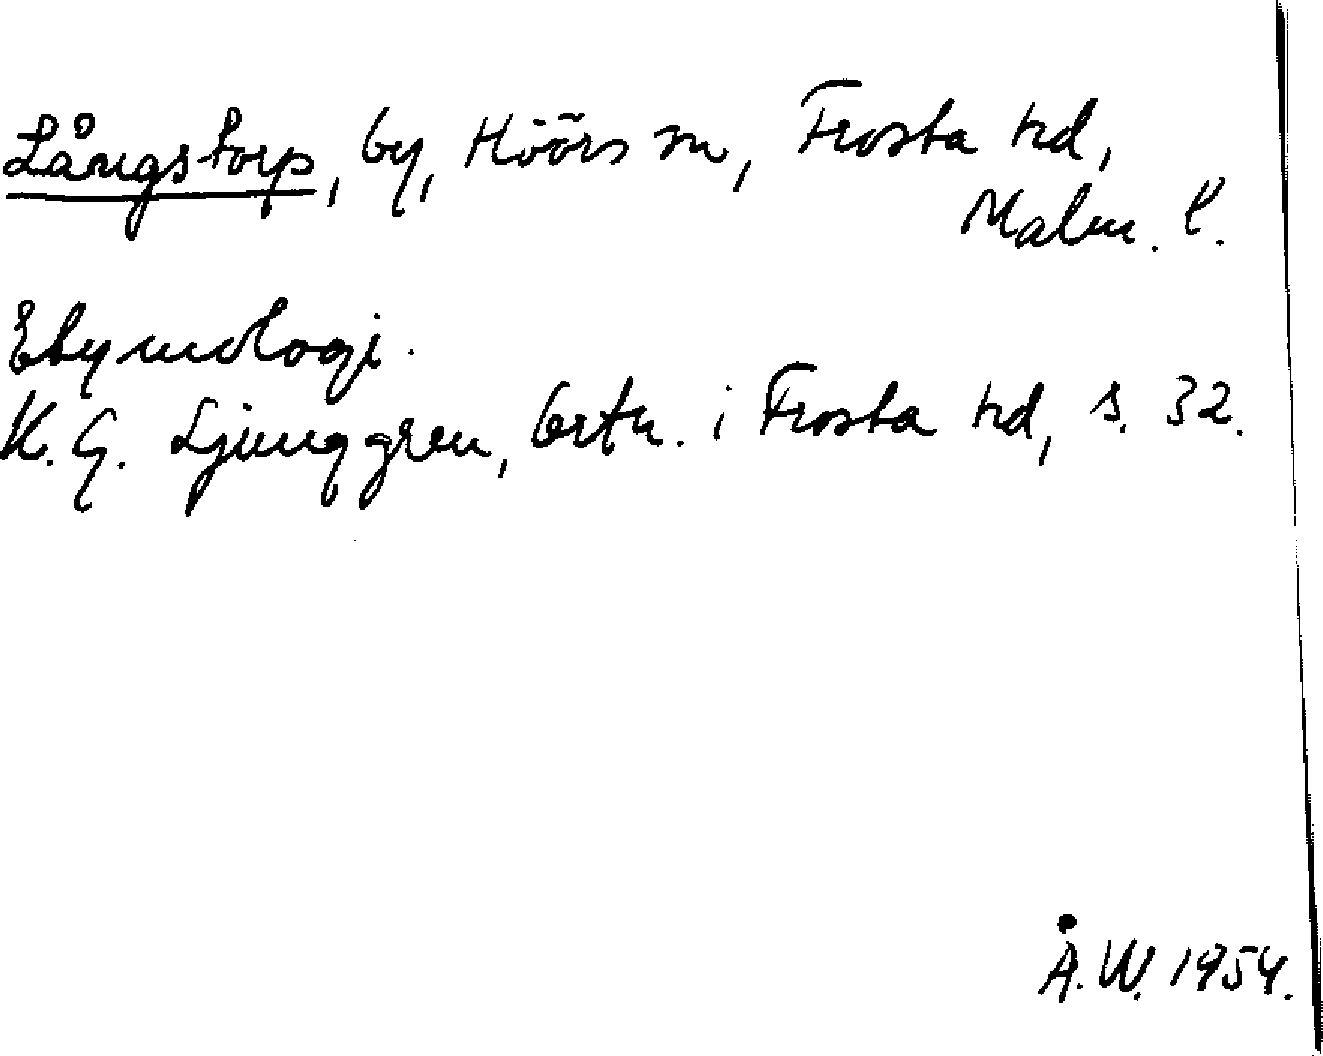 Långstorp, by, Höörs sn, Frosta hd,
Malm. l.
Etymologi.
K. G. Ljunggren, Ortn. i Frosta hd, s. 32.
Å. W. 1954.